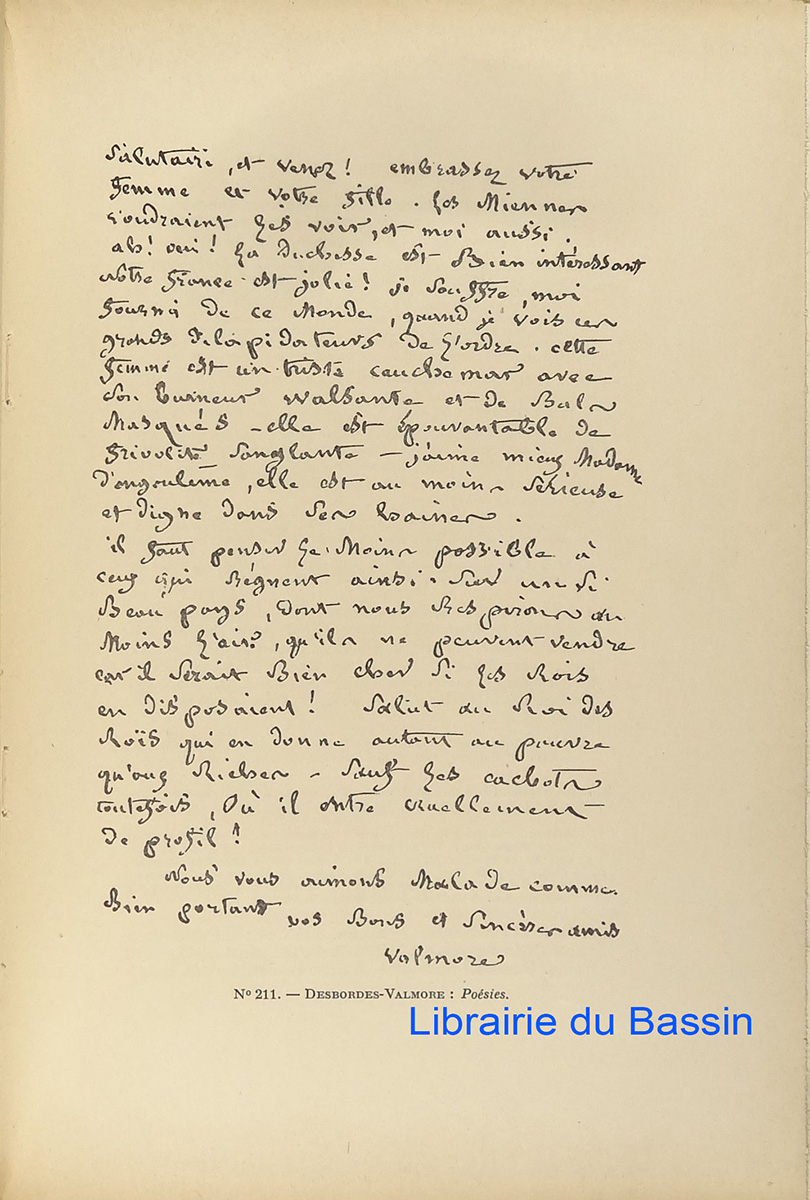 Salutaire, et venez ! embrassez votre
femme et votre fille. les Miennes
voudraient les voir, et moi aussi.
ah ! oui ! la Duchesse est Bien intéressant
notre france est jolie ! je souffre, moi
fourmi de ce Monde, quand je vois ces
grands dilapidateurs de l'ordre. cette
femme est un triste cauchemar avec
son humeur Walsante et de Bals
Masqués – elle est épouvantable de
frivolité sanglante – j'aime mieux Madame
D'angoulême, elle est au moins sérieuse
et digne dans ses haines.
il faut penser le Moins possible à
ceux qui Règnent ainsi sur un si
Beau pays, dont nous Respirons au
Moins l'air, qu'ils ne peuvent vendre
car il serait Bien cher si les Rois
en disposaient ! Salut au Roi des
Rois qui en donne autant au pauvre
qu'aux Riches – sauf les cachots
toutefois, Où il entre cruellement
De profil !
Nous vous aimons Malade comme
Bien portant vos Bons et sincères amis
Valmore
Nº 211. — Desbordes-Valmore : Poésies.
Librairie du Bassin